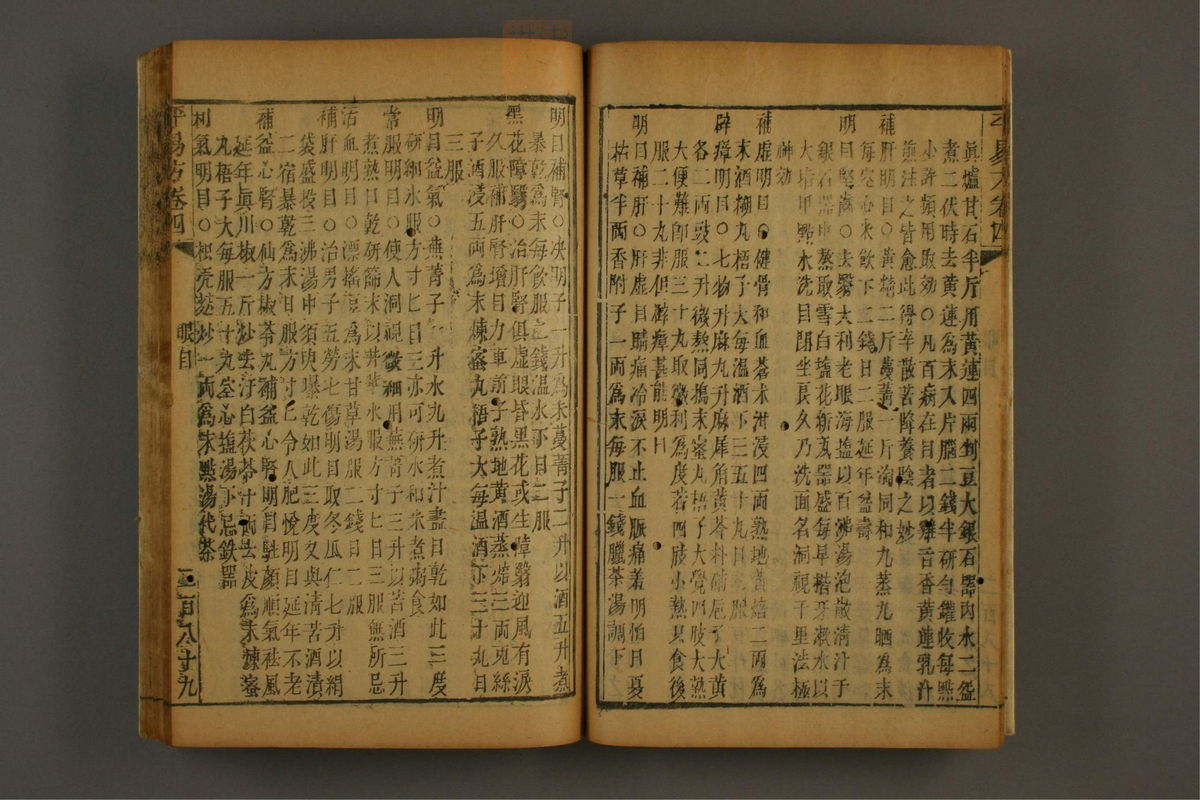 平易方卷四
眞爐甘石半斤用黃連四兩剉豆大銀石器內水二盌
煮二伏時去黃連爲末入片腦二錢半研勻罐收每點
少許頻用取效○凡百病在目者以雞舌香黃連乳汁
煎注之皆愈此得辛散苦降養陰之妙
補肝明目○黃精二斤蔓菁一斤淘同和九蒸九晒爲末
每空心米飲下二錢日二服延年益壽
明目堅齒○去翳大利老眼海鹽以百沸湯泡散淸汁于
銀石器中熬取雪白鹽花新瓦器盛每早楷牙漱水以
大指甲點水洗目閉坐良久乃洗面名洞視千里法極
神妙
補虛明目○健骨和血蒼朮泔浸四兩熟地黃焙二兩爲
末酒糊丸梧子大每溫酒下三五十丸日三服
辟瘴明目○七物升麻丸升麻犀角黃芩朴硝梔子大黃
各二兩豉二升微熬同搗末蜜丸梧子大覺四肢大熱
大便難卽服三十丸取微利爲度若四肢小熱只食後
服二十丸非但辟瘴甚能明目
明目補肝○肝虛目睛痛冷淚不止血脈痛羞明怕日夏
枯草半兩香附子一兩爲末每服一錢臘茶湯調下
明目補腎○決明子一升爲末蔓菁子二升以酒五升煮
暴乾爲末每飲服二錢溫水下日二服
黑花障翳○治肝腎俱虛眼昏黑花或生障翳迎風有淚
久服補肝腎增目力車前子熟地黃酒蒸焙三兩兎絲
子酒浸五兩爲末煉蜜丸梧子大每溫酒下三十丸日
三服
明目益氣○蕪菁子一升水九升煮汁盡日乾如此三度
研細水服方寸匕日三亦可研水和米煮粥食
常服明目○使人洞視蕪菁子三升以苦酒三升
煮熟日乾研篩末以井華水服方寸匕日三服無所忌
活血明目○漂搖豆爲末甘草湯服二錢日二服
補肝明目○治男子五勞七傷明目取冬瓜仁七升以絹
袋盛投三沸湯中須臾曝乾如此三度又與淸苦酒漬
二宿暴乾爲末日服方寸匕令人肥悅明目延年不老
補益心腎○仙方椒苓丸補益心腎明目駐顏順氣祛風
延年眞川椒一斤炒去汗白茯苓十兩去皮爲末煉蜜
丸梧子大每服五十丸空心鹽湯下忌鐵器
利氣明目○枳殼麩炒一兩爲末點湯代茶
平易方卷四
眼目